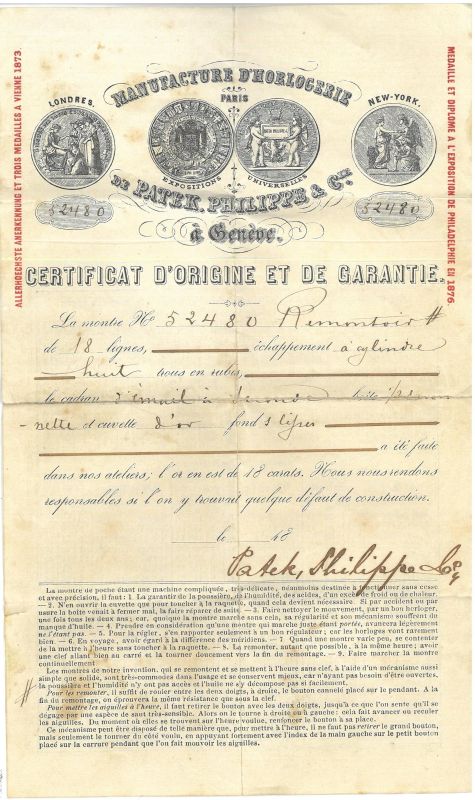 MANUFACTURE D'HORLOGERIE
LONDRES.
PARIS
NEW-YORK.
EXPOSITIONS UNIVERSELLES
DE PATEK, PHILIPPE & Cie
52480
52480
à Genève.
ALLERHOECHSTE ANERKENNUNG ET TROIS MEDAILLES A VIENNE 1873
MEDAILLE ET DIPLOME A L'EXPOSITION DE PHILADELPHIE EN 1876.
CERTIFICAT D'ORIGINE ET DE GARANTIE.
La montre No 52480 Remontoir #
de 18 lignes, échappement à cylindre
huit trous en rubis,
le cadran d'émail à
nette et cuvette d'or fond
a été faite
dans nos ateliers; l'or en est de 18 carats. Nous nous rendons
responsables si l'on y trouvait quelque défaut de construction.
le 18
Patek, Philippe & Co
La montre de poche étant une machine compliquée, très-délicate, néanmoins destinée à fonctionner sans cesse
et avec précision, il faut: 1. La garantir de la poussière, de l'humidité, des acides, d'un excès de froid ou de chaleur.
— 2. N'en ouvrir la cuvette que pour toucher à la raquette, quand cela devient nécessaire. Si par accident ou par
usure la boîte venait à fermer mal, la faire réparer de suite. — 3. Faire nettoyer le mouvement, par un bon horloger,
une fois tous les deux ans; car, quoique la montre marche sans cela, sa régularité et son mécanisme souffrent du
manque d'huile. — 4. Prendre en considération qu'une montre qui marche juste étant portée, avancera légèrement
ne l'étant pas. — 5. Pour la régler, s'en rapporter seulement à un bon régulateur; car les horloges vont rarement
bien. — 6. En voyage, avoir égard à la différence des méridiens. — 7. Quand une montre varie peu, se contenter
de la mettre à l'heure sans toucher à la raquette. — 8. La remonter, autant que possible, à la même heure; avoir
une clef allant bien au carré et la tourner doucement vers la fin du remontage. — 9. Faire marcher la montre
continuellement
Les montres de notre invention, qui se remontent et se mettent à l'heure sans clef, à l'aide d'un mécanisme aussi
simple que solide, sont très-commodes dans l'usage et se conservent mieux, car n'ayant pas besoin d'être ouvertes,
la poussière et l'humidité n'y ont pas accès et l'huile ne s'y décompose pas si facilement.
# Pour les remonter, il suffit de rouler entre les deux doigts, à droite, le bouton cannelé placé sur le pendant. A la
fin du remontage, on éprouvera la même résistance que sous la clef.
Pour mettre les aiguilles à l'heure, il faut retirer le bouton avec les deux doigts, jusqu'à ce que l'on sente qu'il se
dégage par une espèce de saut très-sensible. Alors on le tourne à droite ou à gauche: cela fait avancer ou reculer
les aiguilles. Du moment où elles se trouvent sur l'heure voulue, renfoncer le bouton à sa place.
Ce mécanisme peut être disposé de telle manière que, pour mettre à l'heure, il ne faut pas retirer le grand bouton,
mais seulement le tourner du côté voulu, en appuyant fortement avec l'index de la main gauche sur le petit bouton
placé sur la carrure pendant que l'on fait mouvoir les aiguilles.